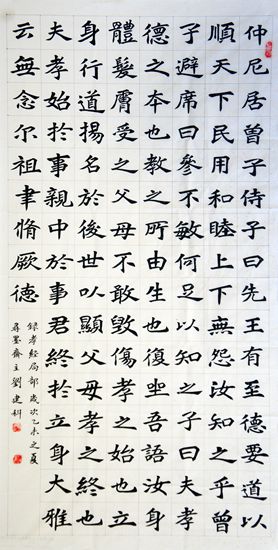 仲尼居曾子侍子曰先王有至德要道以
順天下民用和睦上下無怨汝知之乎曾
子避席曰參不敏何足以知之子曰夫孝
德之本也教之所由生也復坐吾語汝身
體髮膚受之父母不敢毀傷孝之始也立
身行道揚名於後世以顯父母孝之終也
夫孝始於事親中於事君終於立身大雅
云無念尔祖聿脩厥德
錄孝經局部歲次乙未之夏
尋墨齋主劉建科